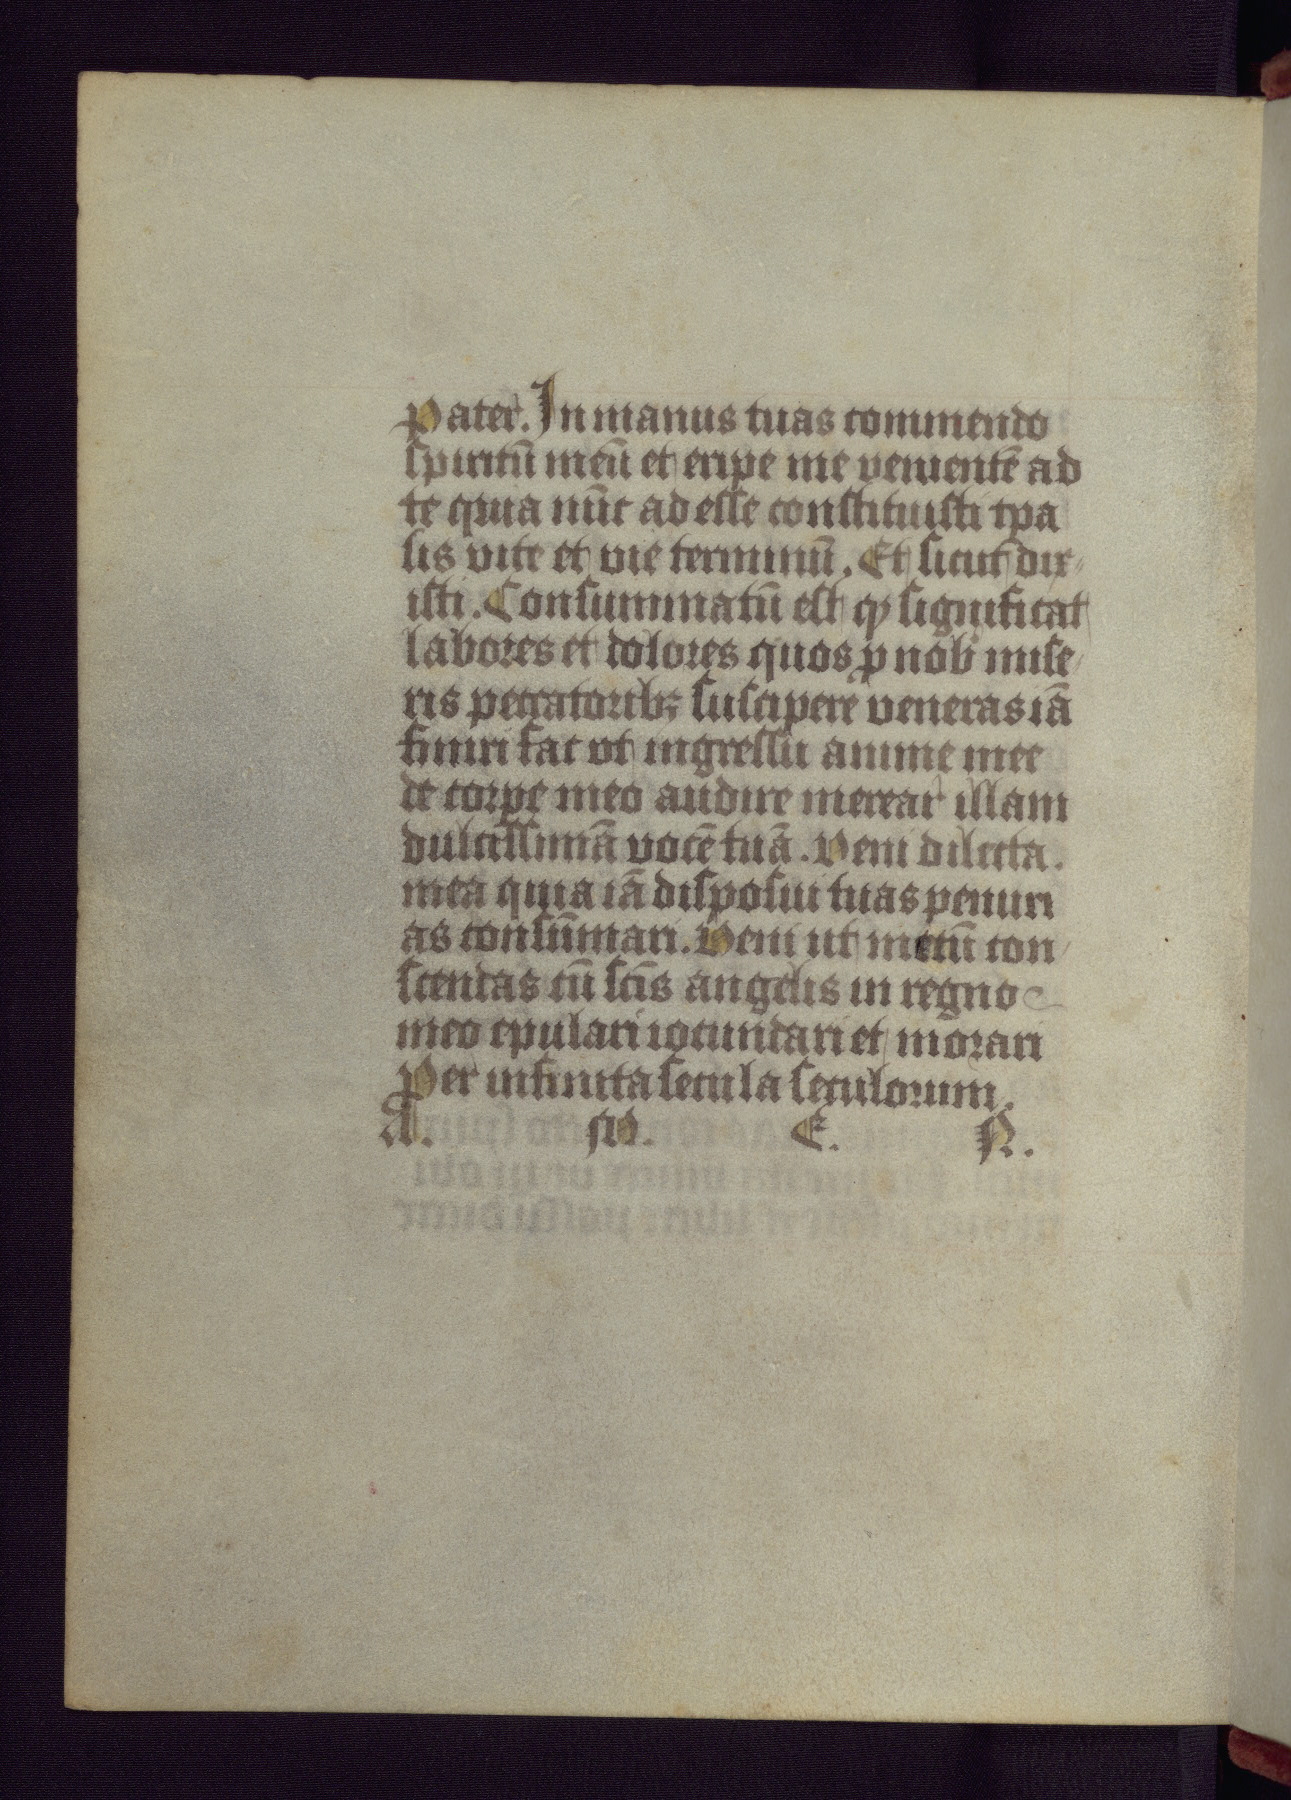 Pater. In manus tuas commendo
spiritū meū et eripe me venientē ad
te quia nūc ad esse constituisti tpa
lis vite et vie terminū. Et sicut dix
isti. Consummatū est qꝫ significat
labores et dolores quos ꝓ nob mise
ris peccatoribꝫ suscipere veneras iā
finiri fac ut ingressu anime mee
de corpe meo audire merear illam
dulcissimā vocē tuā. Veni dilecta.
mea quia iā disposui tuas penuri
as consūmari. Veni ut mecū con
scendas cū scīs angelis in regno
meo epulari iocundari et morari
Per infinita secula seculorum.
A. M. E. N.